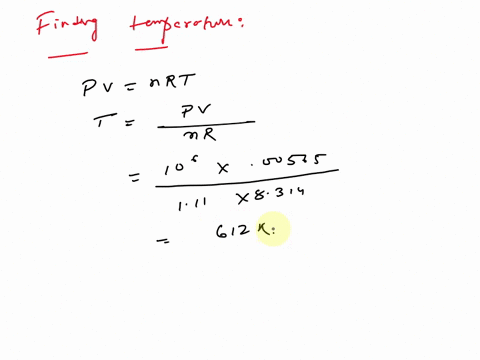 Finding temperature:
PV = nRT
T = PV / nR
= 10⁶ × .00565 / 1.11 × 8.314
= 612 K.